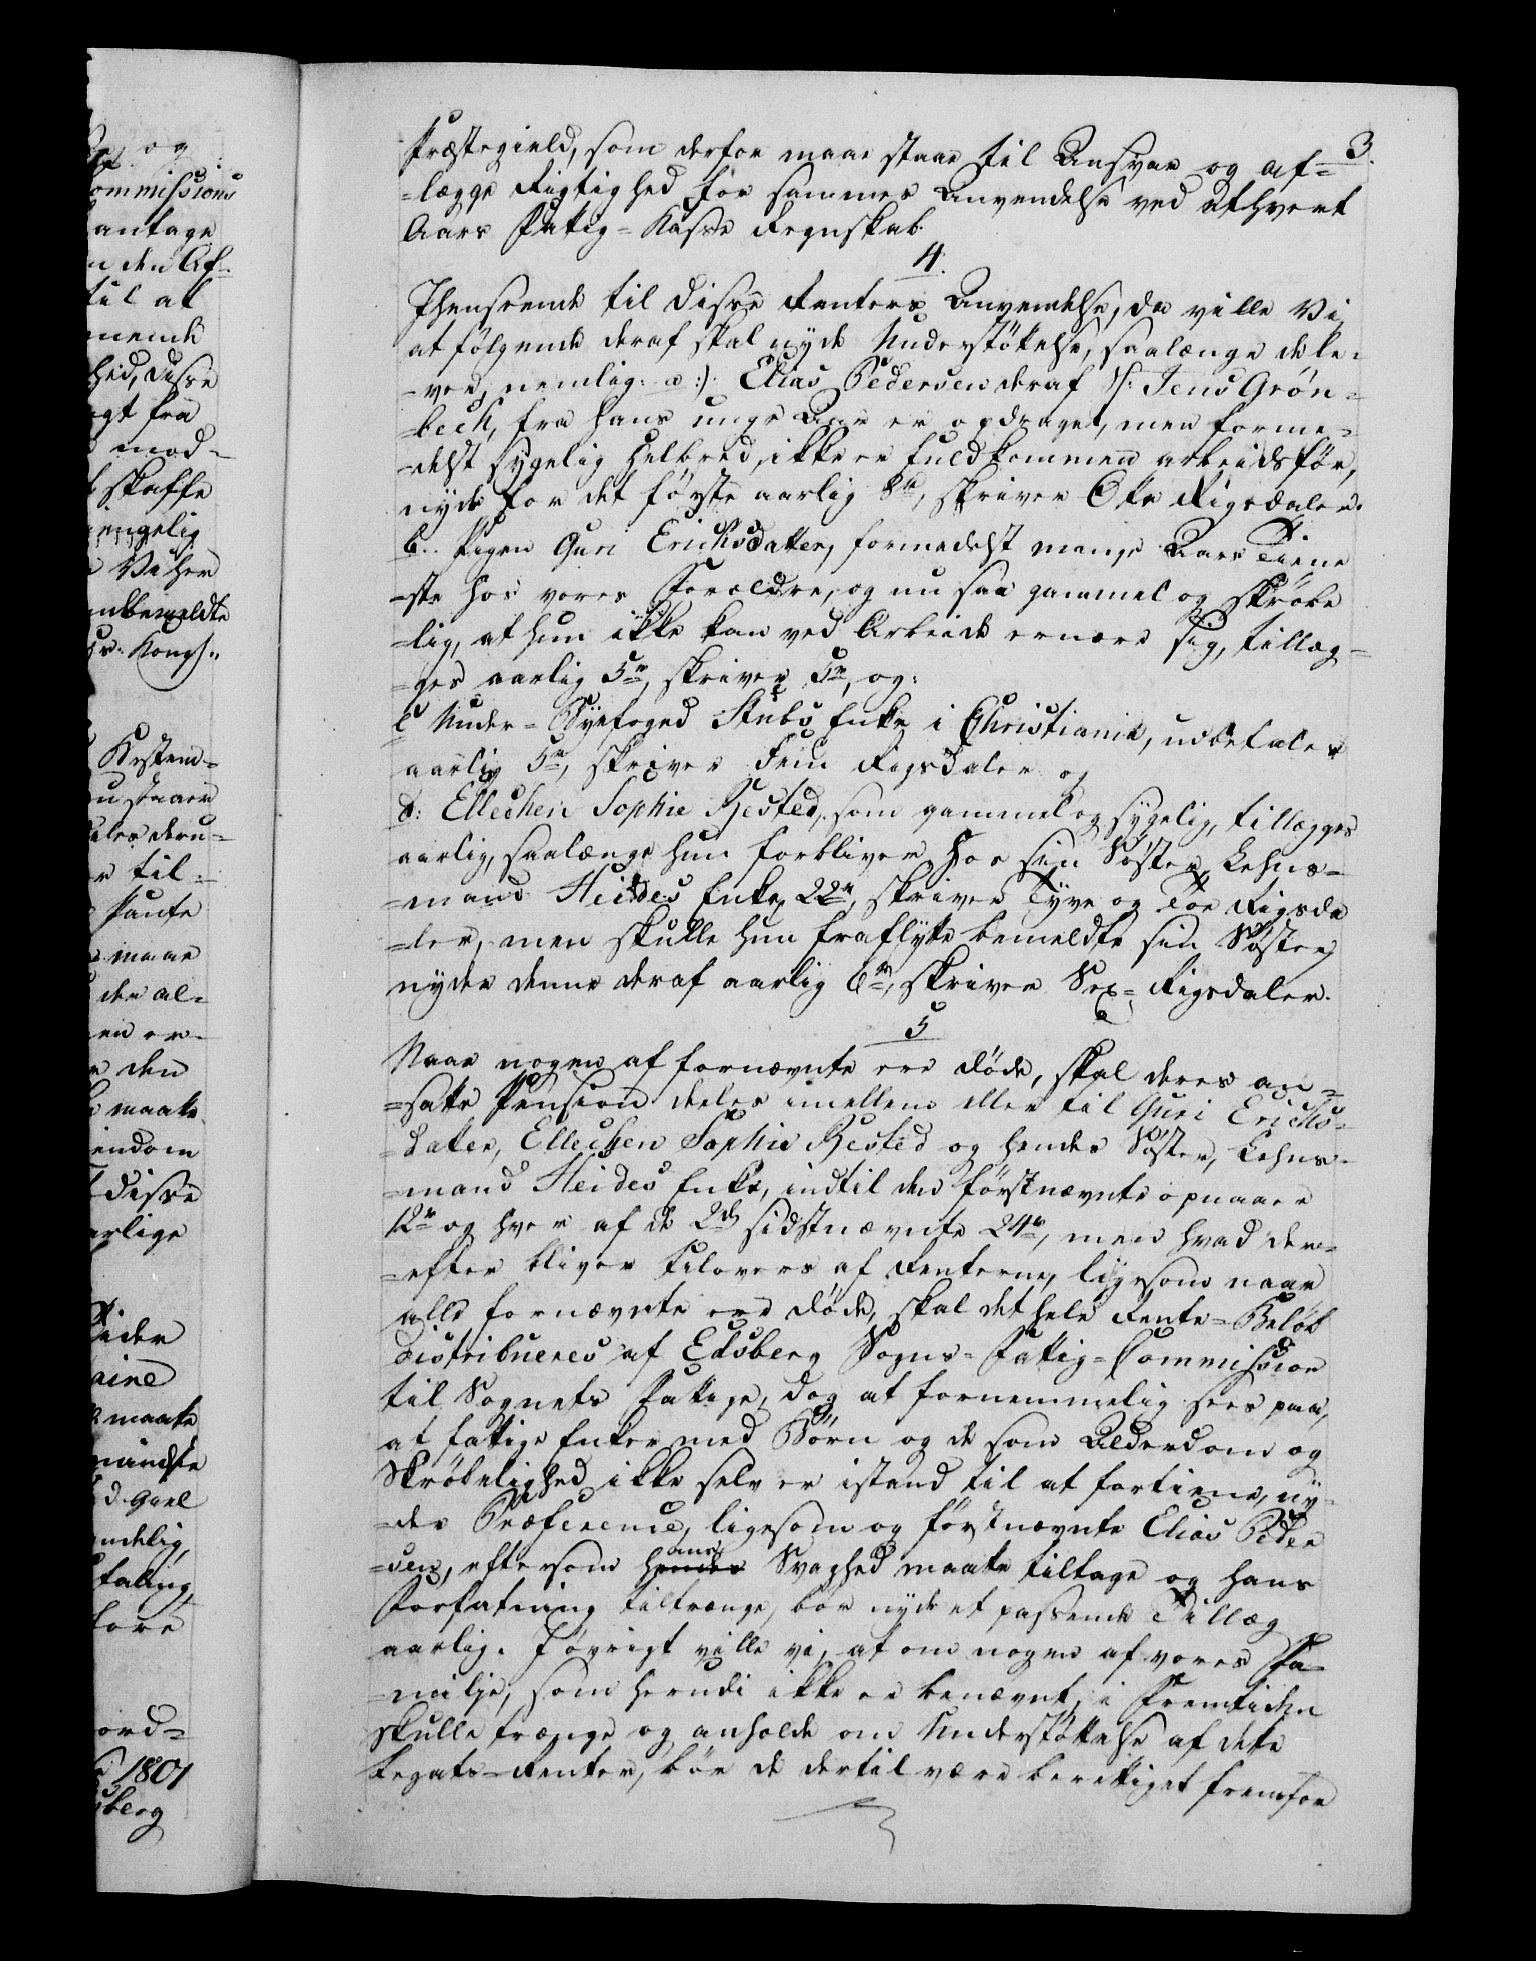 3.
Præstegield, som derfor maae staae til Ansvar og af=
=lægge Rigtighed for sammes Anvendelse ved ethvert
Aars Fattig=Kasse Regnskab.
4.
Ihenseende til disse Renters Anvendelse, da ville Vi,
at følgende deraf skal nyde Understøttelse, saalænge de le=
=ver, nemlig: a:). Elias Pedersen deraf Jens Grøn=
=bech, fra hans unge Aar er opdraget, men forme=
=delst sygelig Helbred, ikke er fuldkommen arbeidsfør,
nyde for det første aarlig 8rd, skriver Otte Rigsdaler.
b. Pigen Guri Erichsdatter, formedelst mange Aars Tiene
=ste hos vores Forældre, og nu saa gammel og skrøbe
=lig, at hun ikke kan ved Arbeide ernære sig, tillæg=
=ges aarlig 5rd, skriver 5rd, og:
c Under=Byefoged Stubs Enke i Christiania, udbetales
aarlig 5rd, skriver Fem Rigsdaler og
d: Ellechen Sophie Rested, som gammel og sygelig, tillægges
aarlig, saalænge hun forbliver hos sin Søster, Lehns=
=mand Heides Enke, 22rd, skriver Tyve og Toe Rigsda
=ler, men skulle hun fraflytte bemeldte sin Søster,
nyder denne deraf aarlig 6rd, skriver Sex= Rigsdaler.
5
Naar nogen af fornævnte ere døde, skal deres an=
=satte Pension deeles imellem eller til Guri Erichs=
=datter, Ellechen Sophie Rested og hendes Søster, Lehns=
=mand Heides Enke, indtil den førstnævnte opnaaer
12rd og hver af de 2de sidstnævnte 24rd, men hvad der=
=efter bliver tilovers af Renterne, ligesom naar
alle fornævnte ere døde, skal det hele Rente=Beløb
distribueres af Edsberg Sogns=Fattig=Commission
til Sognets Fattige, dog at fornemmelig sees paa,
at fattige Enker med Børn og de som Alderdom og
Skrøbelighed ikke selv er istand til at fortiene, ny=
=der Præference, ligesom og førstnævnte Elias Peder
=sen, eftersom hans Svaghed maatte tiltage og hans
Forfatning tiltrænge, bør nyde et passende Tillæg
aarlig. Iøvrigt ville vi, at om nogen af vores Fa=
=milje, som herudi ikke er benævnt, i Fremtiden
skulle trænge og anholde om Understøttelse af dette
Legats=Renter, bør de dertil være berettiget fremfor